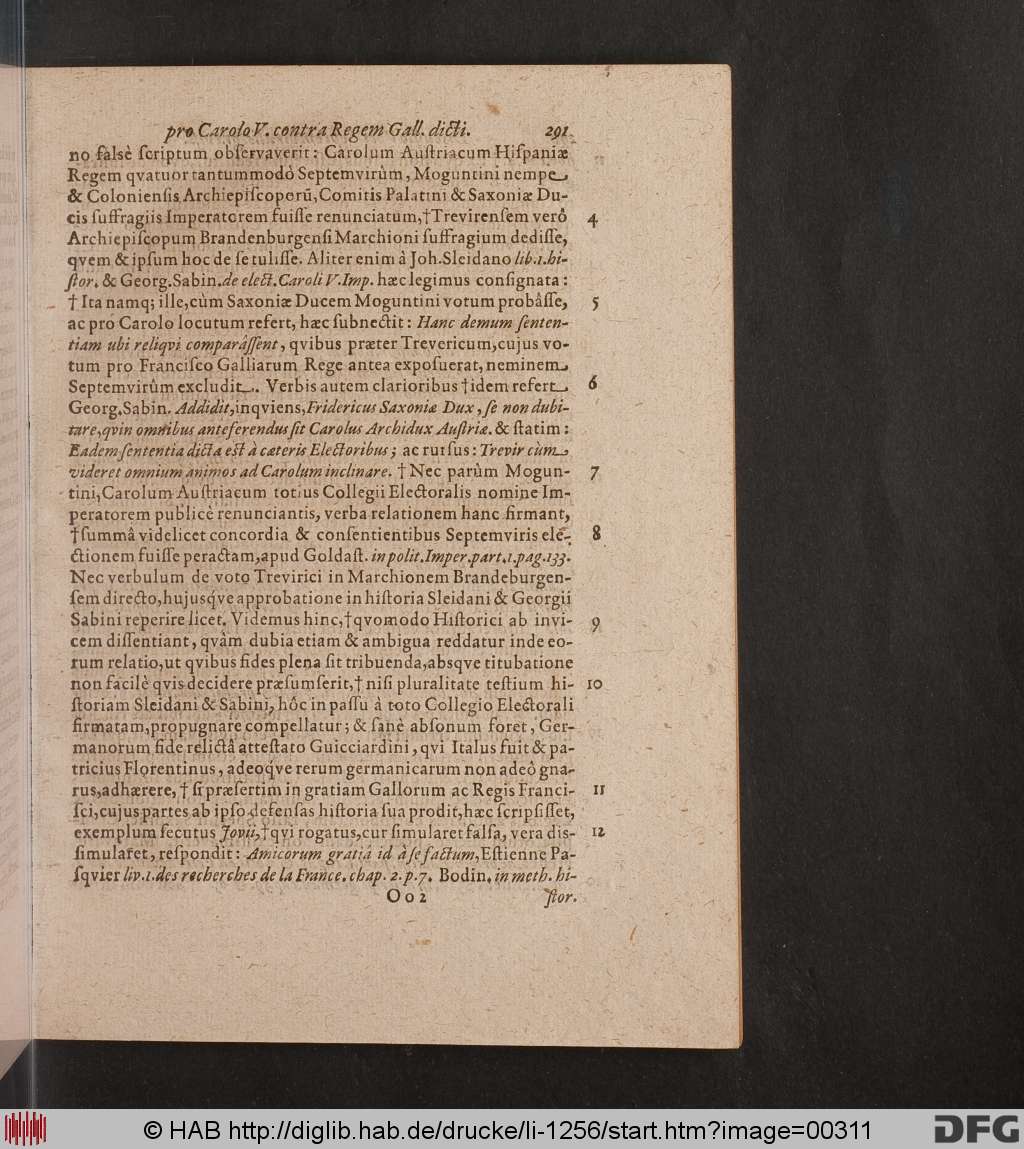 pro Carolo V. contra Regem Gall. dicti. 291
no falsè ſcriptum obſervaverit: Carolum Auſtriacum Hiſpaniæ
Regem qvatuor tantummodò Septemvirûm, Moguntini nempe
& Colonienſis Archiepiſcoporũ, Comitis Palatini & Saxoniæ Du-
cis ſuffragiis Imperatorem fuiſſe renunciatum, † Trevirenſem verò 4
Archiepiſcopum Brandenburgenſi Marchioni ſuffragium dediſſe,
qvem & ipſum hoc de ſe tuliſſe. Aliter enim à Joh. Sleidano lib. 1. hi-
ſtor. & Georg. Sabin. de elect. Caroli V. Imp. hæc legimus conſignata:
† Ita namq; ille, cùm Saxoniæ Ducem Moguntini votum probâſſe, 5
ac pro Carolo locutum refert, hæc ſubnectit: Hanc demum ſenten-
tiam ubi reliqvi comparâſſent, qvibus præter Trevericum, cujus vo-
tum pro Franciſco Galliarum Rege antea expoſuerat, neminem
Septemvirûm excludit. Verbis autem clarioribus † idem refert 6
Georg. Sabin. Addidit, inqviens, Fridericus Saxoniæ Dux, ſe non dubi-
tare, qvin omnibus anteferendus ſit Carolus Archidux Auſtriæ. & ſtatim:
Eadem ſententia dicta eſt à cæteris Electoribus; ac rurſus: Trevir cùm
videret omnium animos ad Carolum inclinare. † Nec parùm Mogun- 7
tini, Carolum Auſtriacum totius Collegii Electoralis nomine Im-
peratorem publicè renunciantis, verba relationem hanc firmant,
† ſummâ videlicet concordia & conſentientibus Septemviris ele- 8
ctionem fuiſſe peractam, apud Goldaſt. in polit. Imper. part. 1. pag. 133.
Nec verbulum de voto Trevirici in Marchionem Brandeburgen-
ſem directo, hujusq́ve approbatione in hiſtoria Sleidani & Georgii
Sabini reperire licet. Videmus hinc, † qvomodo Hiſtorici ab invi- 9
cem diſſentiant, qvàm dubia etiam & ambigua reddatur inde eo-
rum relatio, ut qvibus fides plena ſit tribuenda, absqve titubatione
non facilè qvis decidere præſumſerit, † niſi pluralitate teſtium hi- 10
ſtoriam Sleidani & Sabini, hôc in paſſu à toto Collegio Electorali
firmatam, propugnare compellatur; & ſanè abſonum foret, Ger-
manorum fide relictâ atteſtato Guicciardini, qvi Italus fuit & pa-
tricius Florentinus, adeoq́ve rerum germanicarum non adeò gna-
rus, adhærere, † ſi præſertim in gratiam Gallorum ac Regis Franci- 11
ſci, cujus partes ab ipſo defenſas hiſtoria ſua prodit, hæc ſcripſiſſet,
exemplum ſecutus Jovii, † qvi rogatus, cur ſimularet falſa, vera dis- 12
ſimularet, reſpondit: Amicorum gratiâ id à ſe factum, Eſtienne Pa-
ſqvier liv. 1. des recherches de la France. chap. 2. p. 7. Bodin. in meth. hi-
Oo 2 ſtor.
© HAB http://diglib.hab.de/drucke/li-1256/start.htm?image=00311
DFG